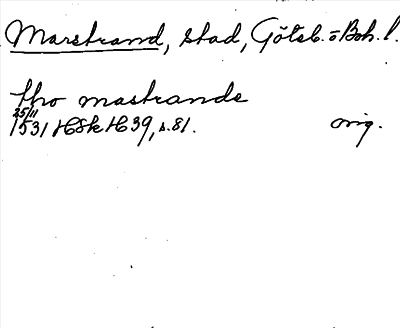 Marstrand, stad, Göteb. o Boh. l.
thro mastrande
25/11
1531 HSk H 39, s. 81. orig.